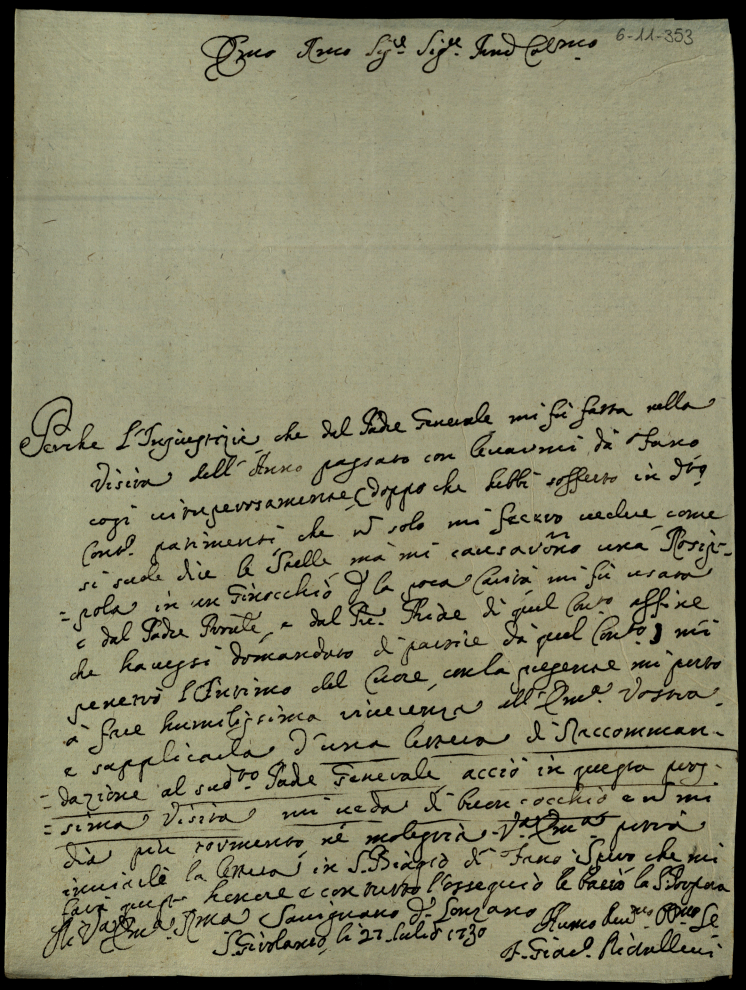 6-11-353
Emo Rmo Sig.e Sig.e Pnd Colmo
Perche l'Ingiustizie che dal Padre Generale mi fù fatta nella
Visita dell'Anno passato con levarmi da Fano
così vituperosamente doppo che hebbi sofferto in d.to
Conv.to patimenti che solo mi fecero vedere come
si suole dire le Stelle ma mi causarono una Rosip-
=pola in un Ginocchio la poca Carità mi fù usata
e dal Padre e dal Pre. di quel Con.to affine
che havessi domandato di partire da quel Con.to, mi
penetrò l'Intimo del Cuore, con la presente mi porto
à fare humilissima riverenza all'Em.a Vostra
e supplicarla d'una lettera di Raccomman-
=dazione al sud.to Padre Generale acciò in questa pros-
=sima Visita mi veda di buon occhio e mi
dia più tormento nè molestia. V.a Em.a potrà
inviarle la lettera in S. Biagio di Fano. Spero che mi
farà questo honore e con tutto l'ossequio le bacio la S. Porpora
Di V.a Em.a Rma Savignano di Lonzano
S. Girolamo, li 27 Luglio 1730
Humo
F. Giac.o